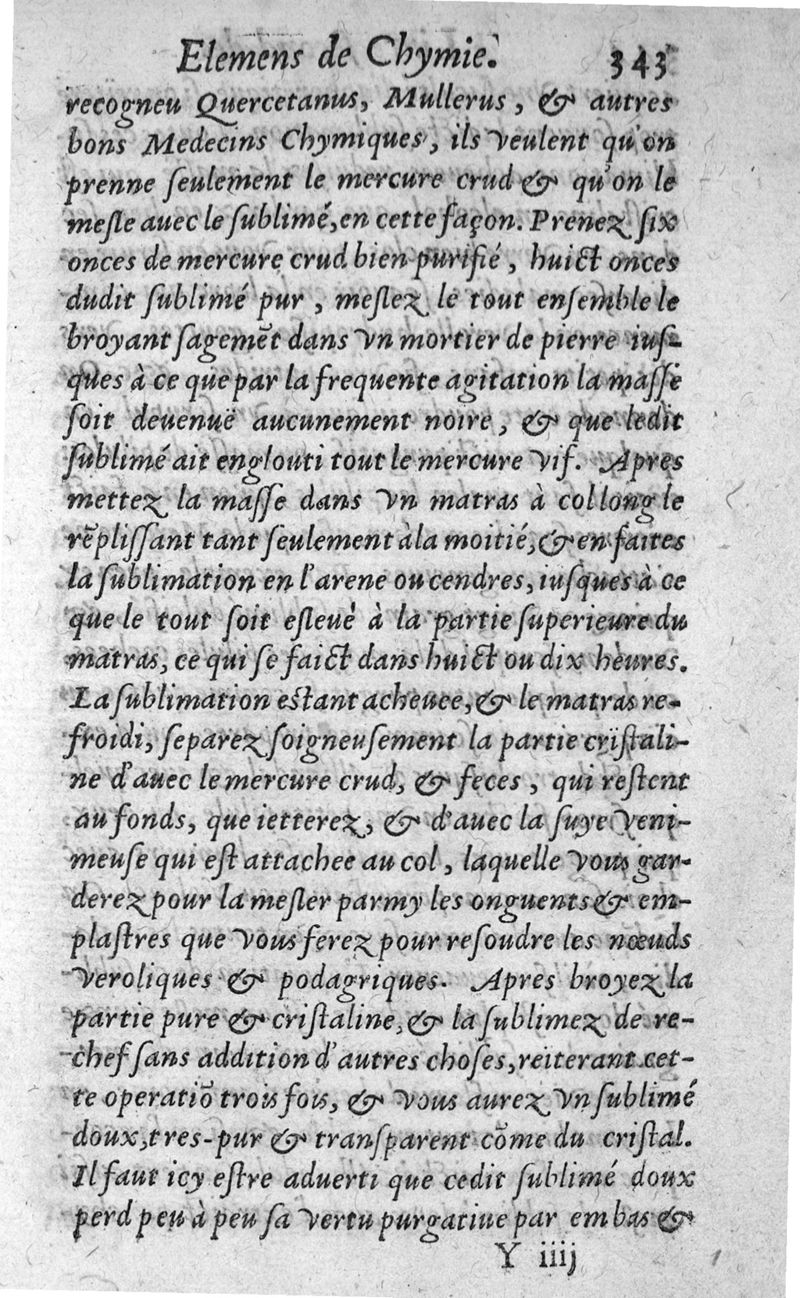 Elemens de Chymie. 343
recogneu Quercetanus, Mullerus, & autres
bons Medecins Chymiques, ils veulent qu'on
prenne ſeulement le mercure crud & qu'on le
meſle avec le ſublimé, en cette façon. Prenez ſix
onces de mercure crud bien purifié, huict onces
dudit ſublimé pur, meſlez le tout enſemble le
broyant ſagemẽt dans vn mortier de pierre iuſ-
ques à ce que par la frequente agitation la maſſe
ſoit deuenuë aucunement noire, & que ledit
ſublimé ait englouti tout le mercure vif. Apres
mettez la maſſe dans vn matras à col long le
rẽpliſſant tant ſeulement à la moitié, & en faites
la ſublimation en l'arene ou cendres, iuſques à ce
que le tout ſoit eſleué à la partie ſuperieure du
matras, ce qui ſe faict dans huict ou dix heures.
La ſublimation eſtant acheuee, & le matras re-
froidi, ſeparez ſoigneuſement la partie criſtali-
ne d'auec le mercure crud, & feces, qui reſtent
au fonds, que ietterez, & d'auec la ſuye veni-
meuſe qui eſt attachee au col, laquelle vous gar-
derez pour la meſler parmy les onguents & em-
plaſtres que vous ferez pour reſoudre les nœuds
veroliques & podagriques. Apres broyez la
partie pure & criſtaline, & la ſublimez de re-
chef ſans addition d'autres choſes, reiterant cet-
te operatiõ trois fois, & vous aurez vn ſublimé
doux, tres-pur & tranſparent cõme du criſtal.
Il faut icy eſtre aduerti que cedit ſublimé doux
perd peu à peu ſa vertu purgatiue par embas &
Y iiij